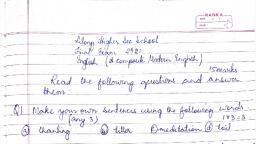 Higher Sec School
Final Exam 2021
English (A composite Modern English)
15 marks
Read the following questions and answer
them.
Q1 Make your own sentences using the following words
(any 3) 1×3=3
a chanting b c meditation d